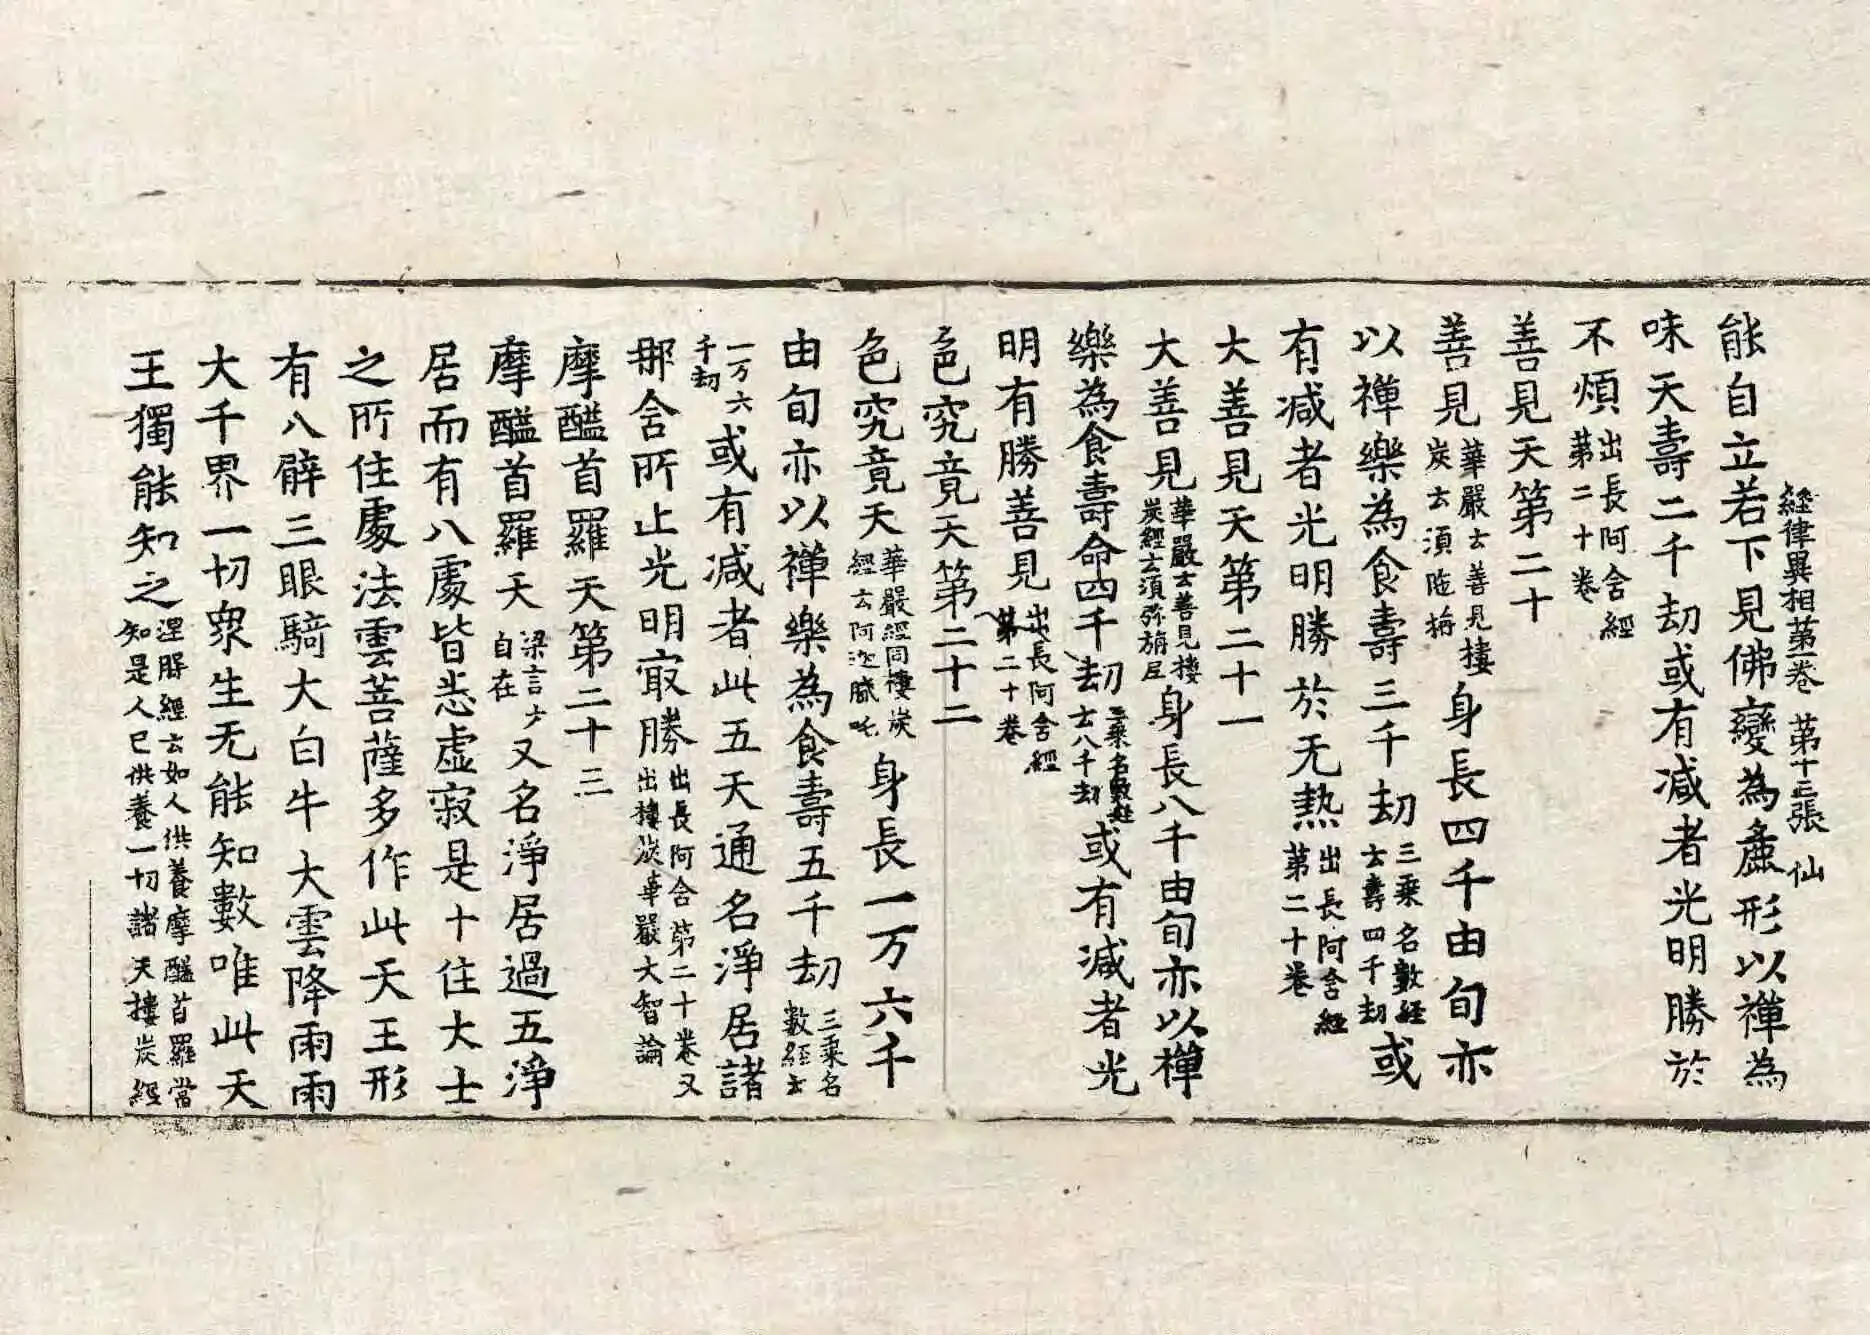 經律異相第一卷 第十三張 仙
能自立若下見佛變為麁形以禪為
味天壽二千劫或有減者光明勝於
不煩出長阿含經第二十卷
善見天第二十
善見華嚴云善見樓炭云須陁旃身長四千由旬亦
以禪樂為食壽三千劫三乘名數經云壽四千劫或
有減者光明勝於无熱出長阿含經第二十卷
大善見天第二十一
大善見華嚴云善見樓炭經云須弥旃尼身長八千由旬亦以禪
樂為食壽命四千劫三乘名數經云八千劫或有減者光
明有勝善見出長阿含經第二十卷
色究竟天第二十二
色究竟天華嚴經同樓炭經云阿迦膩吒身長一万六千
由旬亦以禪樂為食壽五千劫三乘名數經云
一万六千劫或有減者此五天通名淨居諸
那舍所止光明㝡勝出長阿含第二十卷又出樓炭華嚴大智論
摩醯首羅天第二十三
摩醯首羅天梁言大自在又名淨居過五淨
居而有八處皆悉虛寂是十住大士
之所住處法雲菩薩多作此天王形
有八臂三眼騎大白牛大雲降雨雨
大千界一切眾生无能知數唯此天
王獨能知之涅槃經云如人供養摩醯首羅當知是人已供養一切諸天樓炭經